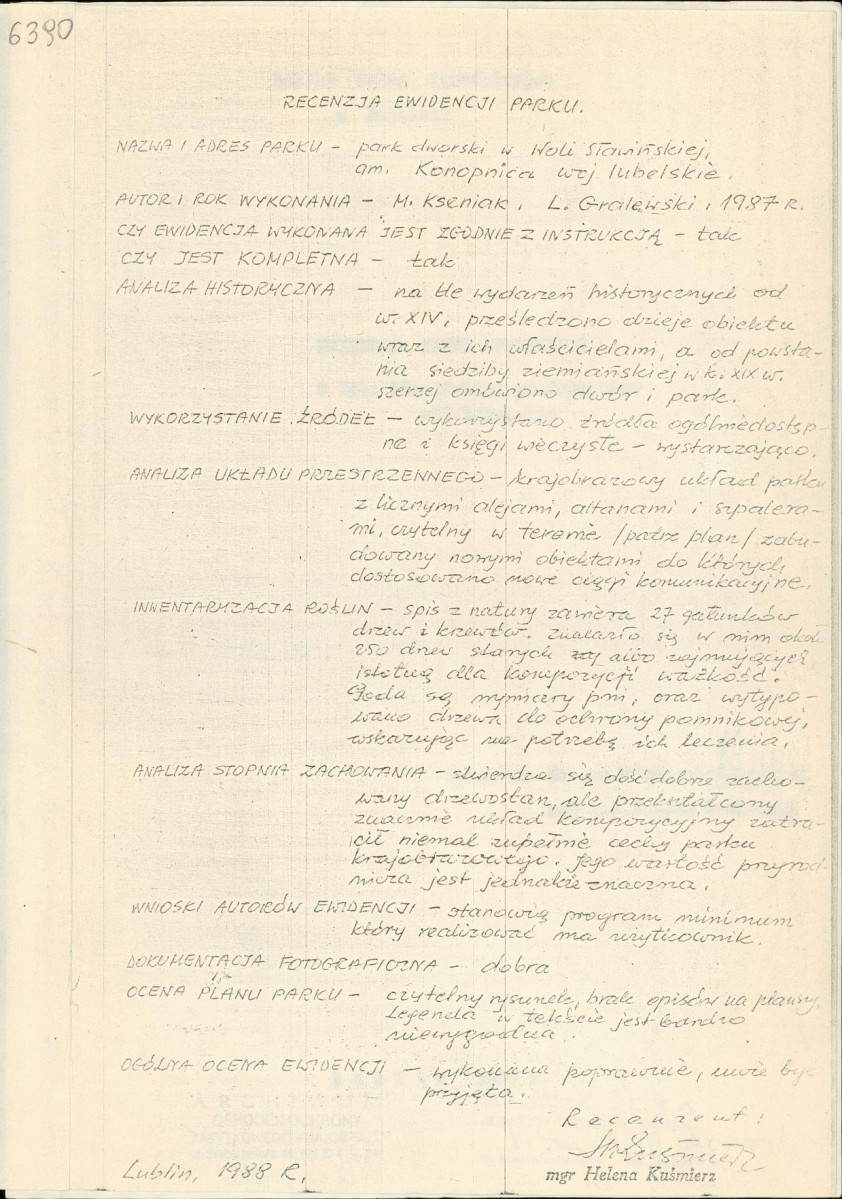 6390
RECENZJA EWIDENCJI PARKU.
NAZWA I ADRES PARKU – park dworski w Woli Sławińskiej,
gm. Konopnica woj lubelskie.
AUTOR I ROK WYKONANIA – M. Kseniak, L. Gralewski, 1987 R.
CZY EWIDENCJA WYKONANA JEST ZGODNIE Z INSTRUKCJĄ – tak
CZY JEST KOMPLETNA – tak
ANALIZA HISTORYCZNA – na tle wydarzeń historycznych od
w. XIV, prześledzono dzieje obiektu
wraz z ich właścicielami, a od powsta-
nia siedziby ziemiańskiej w k. XIX w.
szerzej omówiono dwór i park.
WYKORZYSTANIE ŹRÓDEŁ – wykorzystano źródła ogólniedostęp-
ne i księgi wieczyste – wystarczająco.
ANALIZA UKŁADU PRZESTRZENNEGO – krajobrazowy układ parku
z licznymi alejami, altanami i szpalera-
mi, czytelny w terenie /patrz plan/ zabu-
dowany nowymi obiektami do których
dostosowano nowe ciągi komunikacyjne.
INWENTARYZACJA ROŚLIN – spis z natury zawiera 27 gatunków
drzew i krzewów. Znalazło się w nim około
250 drzew starych albo zajmujących
istotną dla kompozycji ważkość.
Poda są wymiary pni, oraz wytypo-
wano drzewa do ochrony pomnikowej,
wskazując na potrzebę ich leczenia.
ANALIZA STOPNIA ZACHOWANIA – stwierdza się dość dobrze zacho-
wany drzewostan, ale przekształcony
znacznie układ kompozycyjny zatra-
cił niemal zupełnie cechy parku
krajobrazowego. Jego wartość przyrod-
nicza jest jednakże znaczna.
WNIOSKI AUTORÓW EWIDENCJI – stanowią program minimum
który realizować ma użytkownik.
DOKUMENTACJA FOTOGRAFICZNA – dobra
OCENA PLANU PARKU – czytelny rysunek, brak opisów na planszy.
Legenda w tekście jest bardzo
niewygodna.
OGÓLNA OCENA EWIDENCJI – wykonana poprawnie, może być
przyjęta.
Recenzent:
mgr Helena Kuśmierz
Lublin, 1988 R.